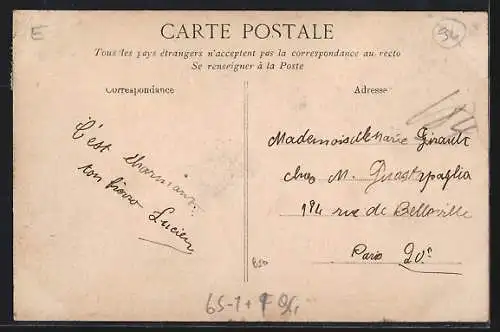 E
CARTE POSTALE
94
Tous les pays étrangers n'acceptent pas la correspondance au recto
Se renseigner à la Poste
Correspondance
C'est charmant
ton
Lucien
Adresse
Mademoiselle Marie Girault
chez M.
194 rue de Belleville
Paris 20e